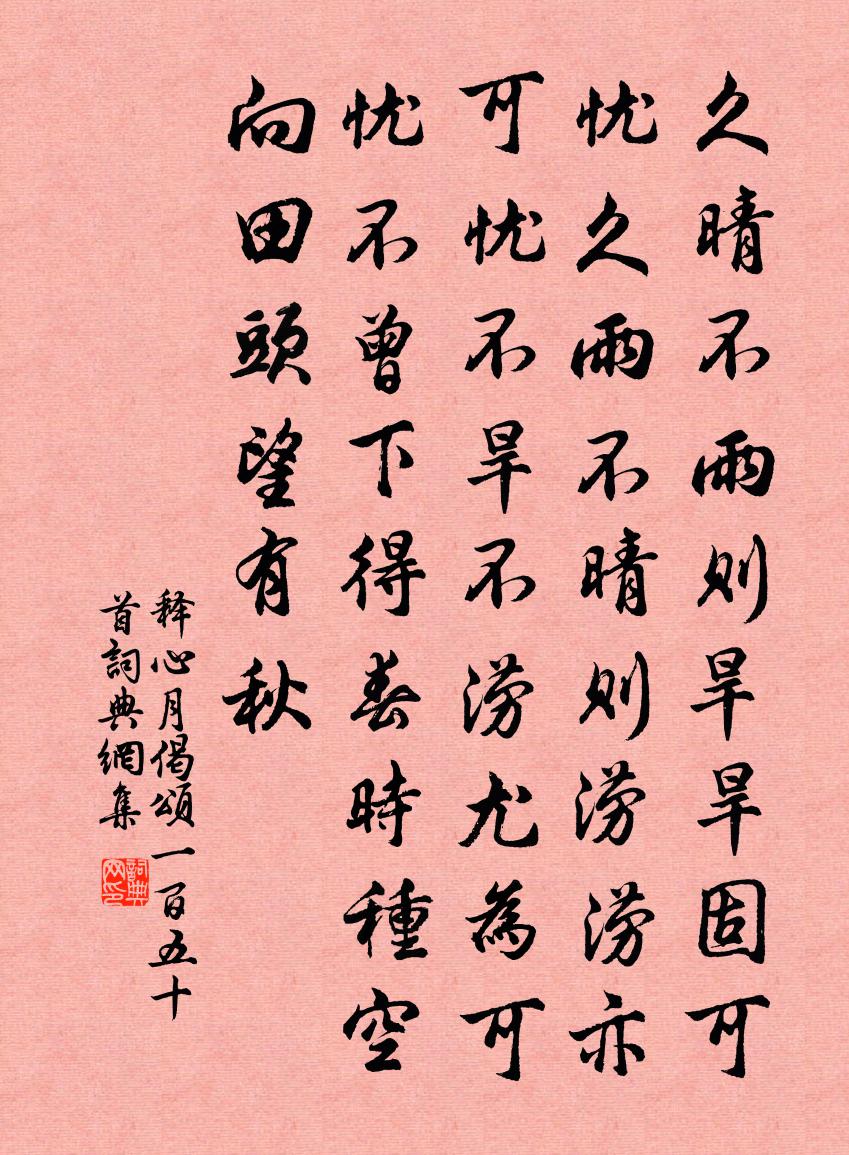 久晴不雨则旱旱固可
忧久雨不晴则涝涝亦
可忧不旱不涝尤為可
忧不曾下得春時種空
向田頭望有秋
释心月偈頌一百五十
首詞典網集
詞典网印